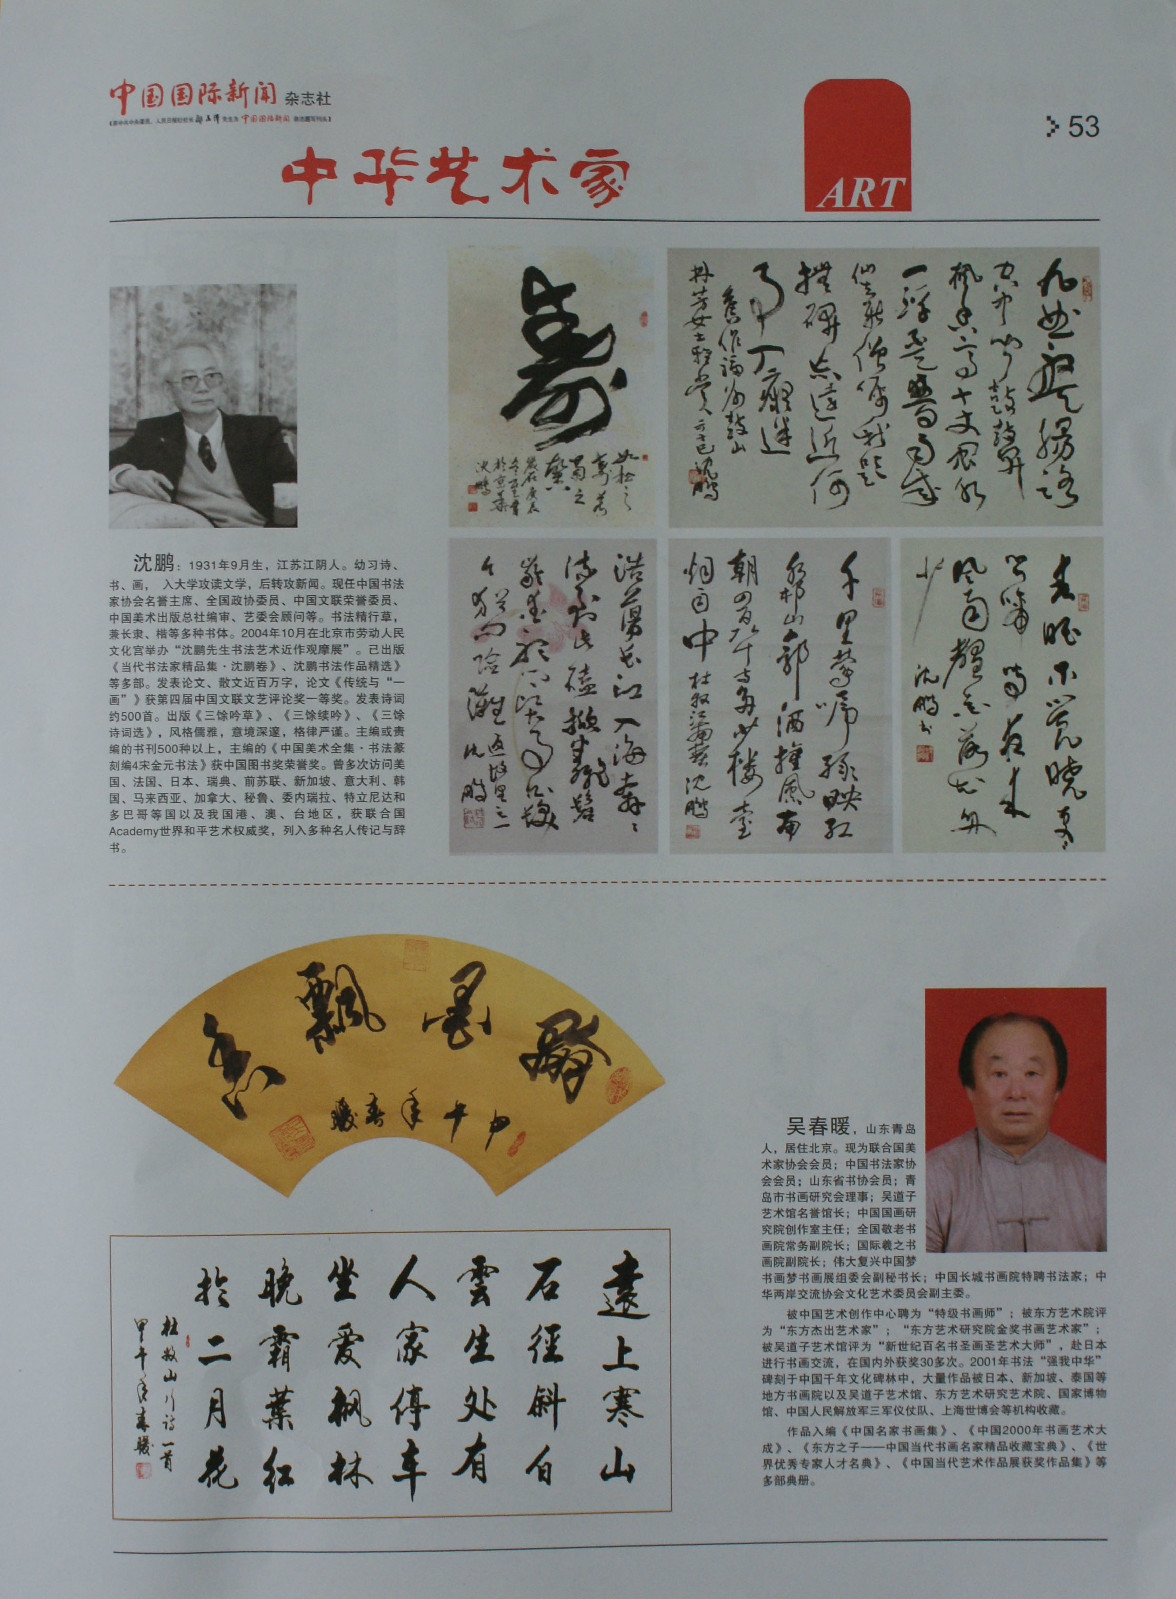 中国国际新闻 杂志社
53
中华艺术家
ART
沈鹏：1931年9月生，江苏江阴人。幼习诗、
书、画， 入大学攻读文学，后转攻新闻。现任中国书法
家协会名誉主席、全国政协委员、中国文联荣誉委员、
中国美术出版总社编审、艺委会顾问等。书法精行草，
兼长隶、楷等多种书体。2004年10月在北京市劳动人民
文化宫举办“沈鹏先生书法艺术近作观摩展”。已出版
《当代书法家精品集·沈鹏卷》、沈鹏书法作品精选》
等多部。发表论文、散文近百万字，论文《传统与“一
画”》获第四届中国文联文艺评论奖一等奖。发表诗词
约500首。出版《三馀吟草》、《三馀续吟》、《三馀
诗词选》，风格儒雅，意境深邃，格律严谨。主编或责
编的书刊500种以上，主编的《中国美术全集·书法篆
刻编4宋金元书法》获中国图书奖荣誉奖。曾多次访问美
国、法国、日本、瑞典、前苏联、新加坡、意大利、韩
国、马来西亚、加拿大、秘鲁、委内瑞拉、特立尼达和
多巴哥等国以及我国港、澳、台地区，获联合国
Academy世界和平艺术权威奖，列入多种名人传记与辞
书。
寿
千里莺啼绿映红
水村山郭酒旗风南
朝四百八十寺多少楼台
烟雨中 杜牧江南春 沈鹏
春眠不觉晓处处
闻啼鸟夜来
风雨声花落知多
少 沈鹏书
翰墨飘香
甲午年春暖
远上寒山
石径斜白
云生处有
人家停车
坐爱枫林
晚霜叶红
于二月花
杜牧山行诗一首
甲午年春暖
吴春暖，山东青岛
人，居住北京。现为联合国美
术家协会会员；中国书法家协
会会员；山东省书协会员；青
岛市书画研究会理事；吴道子
艺术馆名誉馆长；中国国画研
究院创作室主任；全国敬老书
画院常务副院长；国际羲之书
画院副院长；伟大复兴中国梦
书画梦书画展组委会副秘书长；中国长城书画院特聘书法家；中
华两岸交流协会文化艺术委员会副主委。
被中国艺术创作中心聘为“特级书画师”；被东方艺术院评
为“东方杰出艺术家”；“东方艺术研究院金奖书画艺术家”；
被吴道子艺术馆评为“新世纪百名书圣画圣艺术大师”，赴日本
进行书画交流，在国内外获奖30多次。2001年书法“强我中华”
碑刻于中国千年文化碑林中，大量作品被日本、新加坡、泰国等
地方书画院以及吴道子艺术馆、东方艺术研究艺术院、国家博物
馆、中国人民解放军三军仪仗队、上海世博会等机构收藏。
作品入编《中国名家书画集》、《中国2000年书画艺术大
成》、《东方之子——中国当代书画名家精品收藏宝典》、《世
界优秀专家人才名典》、《中国当代艺术作品展获奖作品集》等
多部典册。